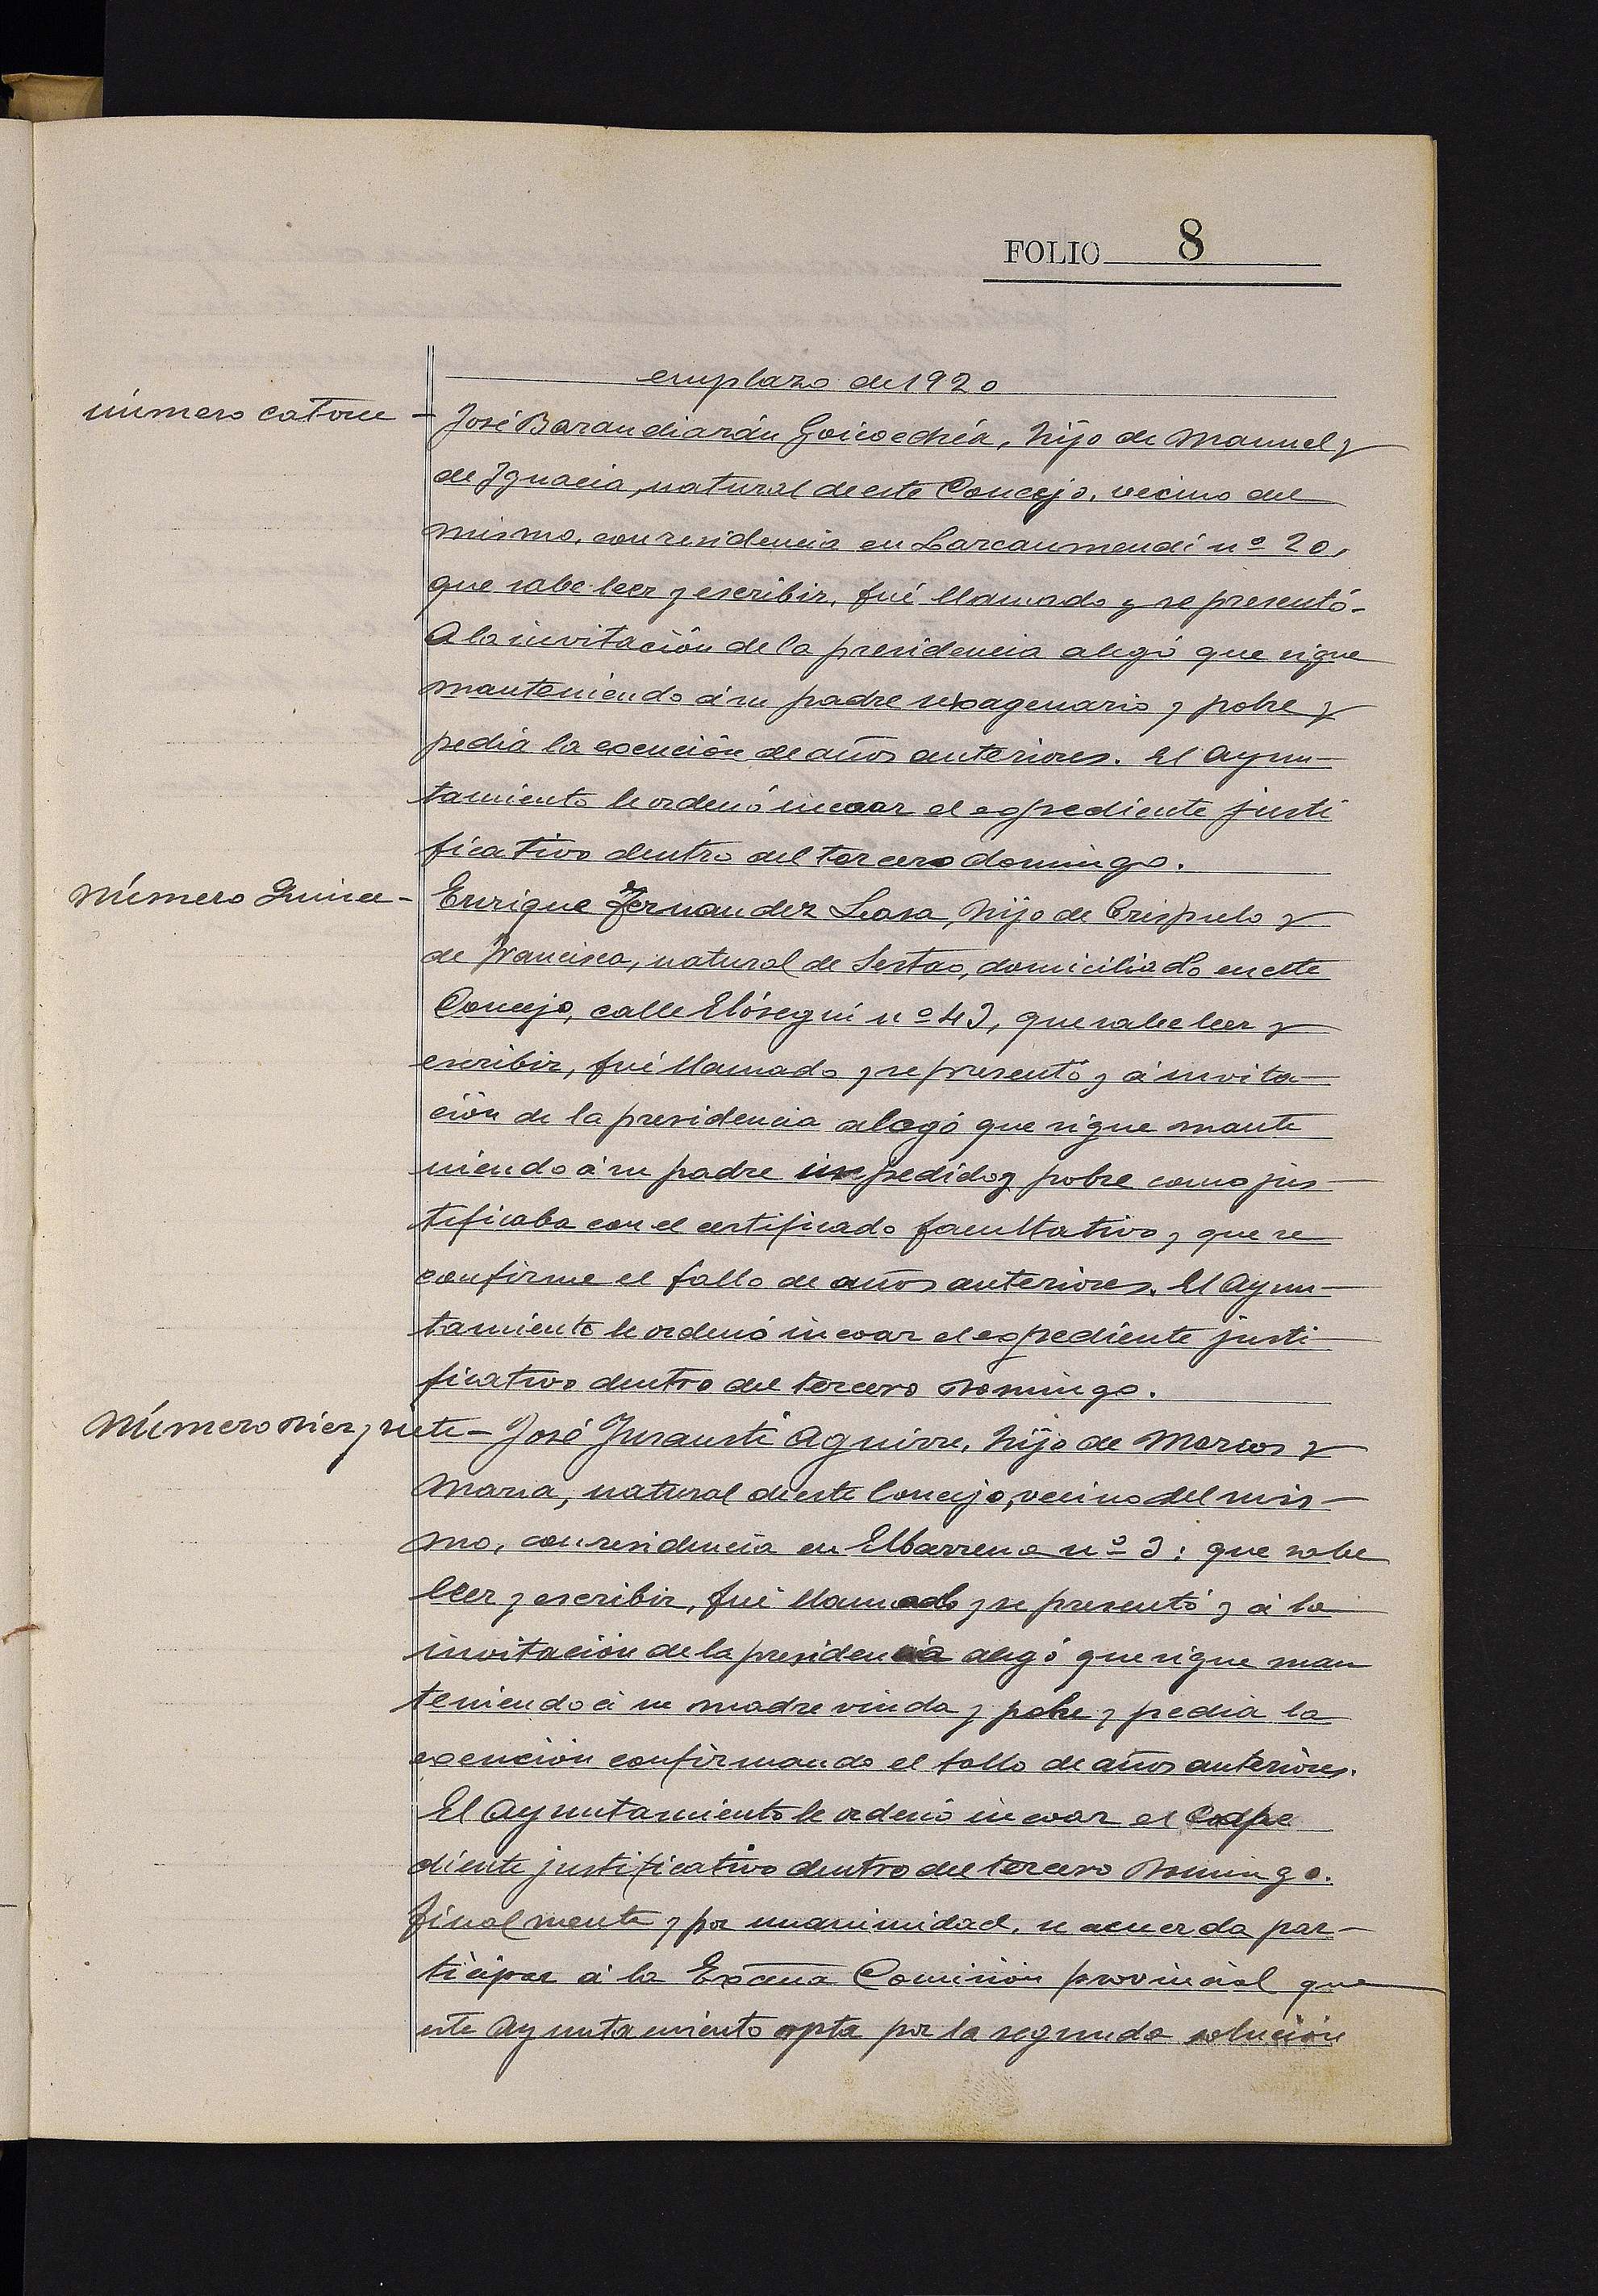 FOLIO 8
emplazo de 1920
número catorce - José Barandiarán Goicoechéa, hijo de Manuel y
de Ignacia, natural de este Concejo, vecino del
mismo, con residencia en Larcaumendi nº 20,
que sabe leer y escribir, fué llamado y se presentó-
A la invitación de la presidencia alegó que sigue
manteniendo á su padre sexagenario y pobre y
pedia la exención de años anteriores. El Ayun-
tamiento le ordenó incoar el expediente justi
ficativo dentro del tercero domingo.
Número Quince - Enrique Fernandez Lasa, hijo de Crispulo y
de Francisca, natural de Sestao, domiciliado en este
Concejo, calle Elósegui nº 43, que sabe leer y
escribir, fué llamado y se presentó y á invita-
ción de la presidencia alegó que sigue mante
niendo á su padre impedido y pobre como jus-
tificaba con el certificado facultativo y que se
confirme el fallo de años anteriores. El Ayun-
tamiento le ordenó incoar el expediente justi-
ficativo dentro del tercero Domingo.
Número Diez y siete - José Insausti Aguirre, hijo de Marcos y
Maria, natural de este Concejo, vecino del mis-
mo, con residencia en Elbarrena nº 3: que sabe
leer y escribir, fué llamado y se presentó y á la
invitación de la presidencia alegó que sigue man
teniendo á su madre viuda y pobre y pedia la
exención confirmando el fallo de años anteriores.
El Ayuntamiento le ordenó incoar el expe
diente justificativo dentro del tercero Domingo.
Finalmente y por unanimidad, se acuerda par-
ticipar á la Excma Comisión provincial que
este Ayuntamiento opta por la segunda solución